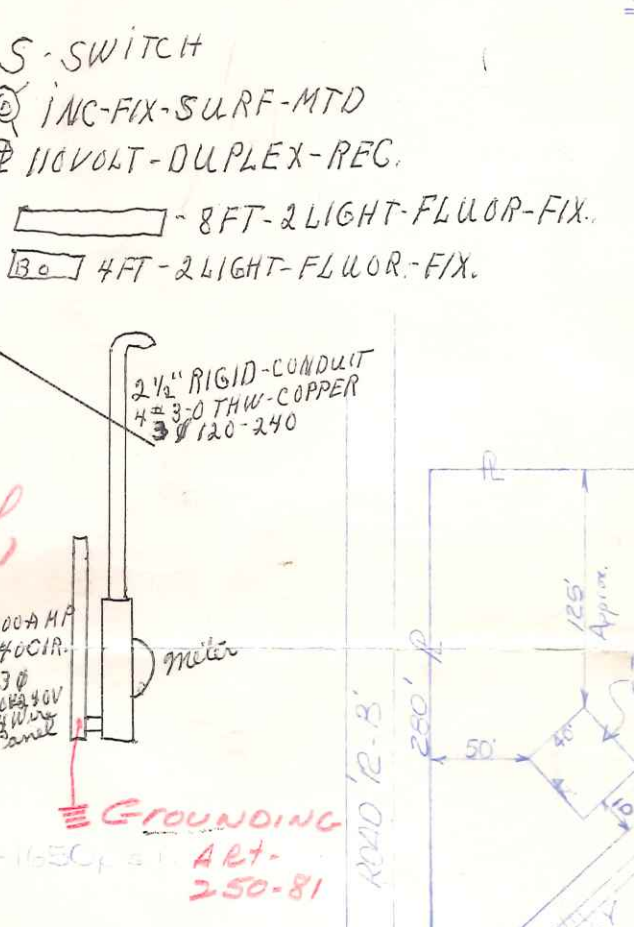 S-SWITCH
INC-FIX-SURF-MTD
110VOLT-DUPLEX-REC.
-8FT-2LIGHT-FLUOR-FIX.
BO 4FT-2LIGHT-FLUOR.-FIX.
2½" RIGID-CONDUIT
4#3-0 THW-COPPER
3Ø 120-240
00AMP
40CIR.
3Ø
4Wire
Panel
Meter
GROUNDING
ARt-
250-81
PL
125'
Approx.
280' PL
50'
40'
10'
ROAD 12-B'